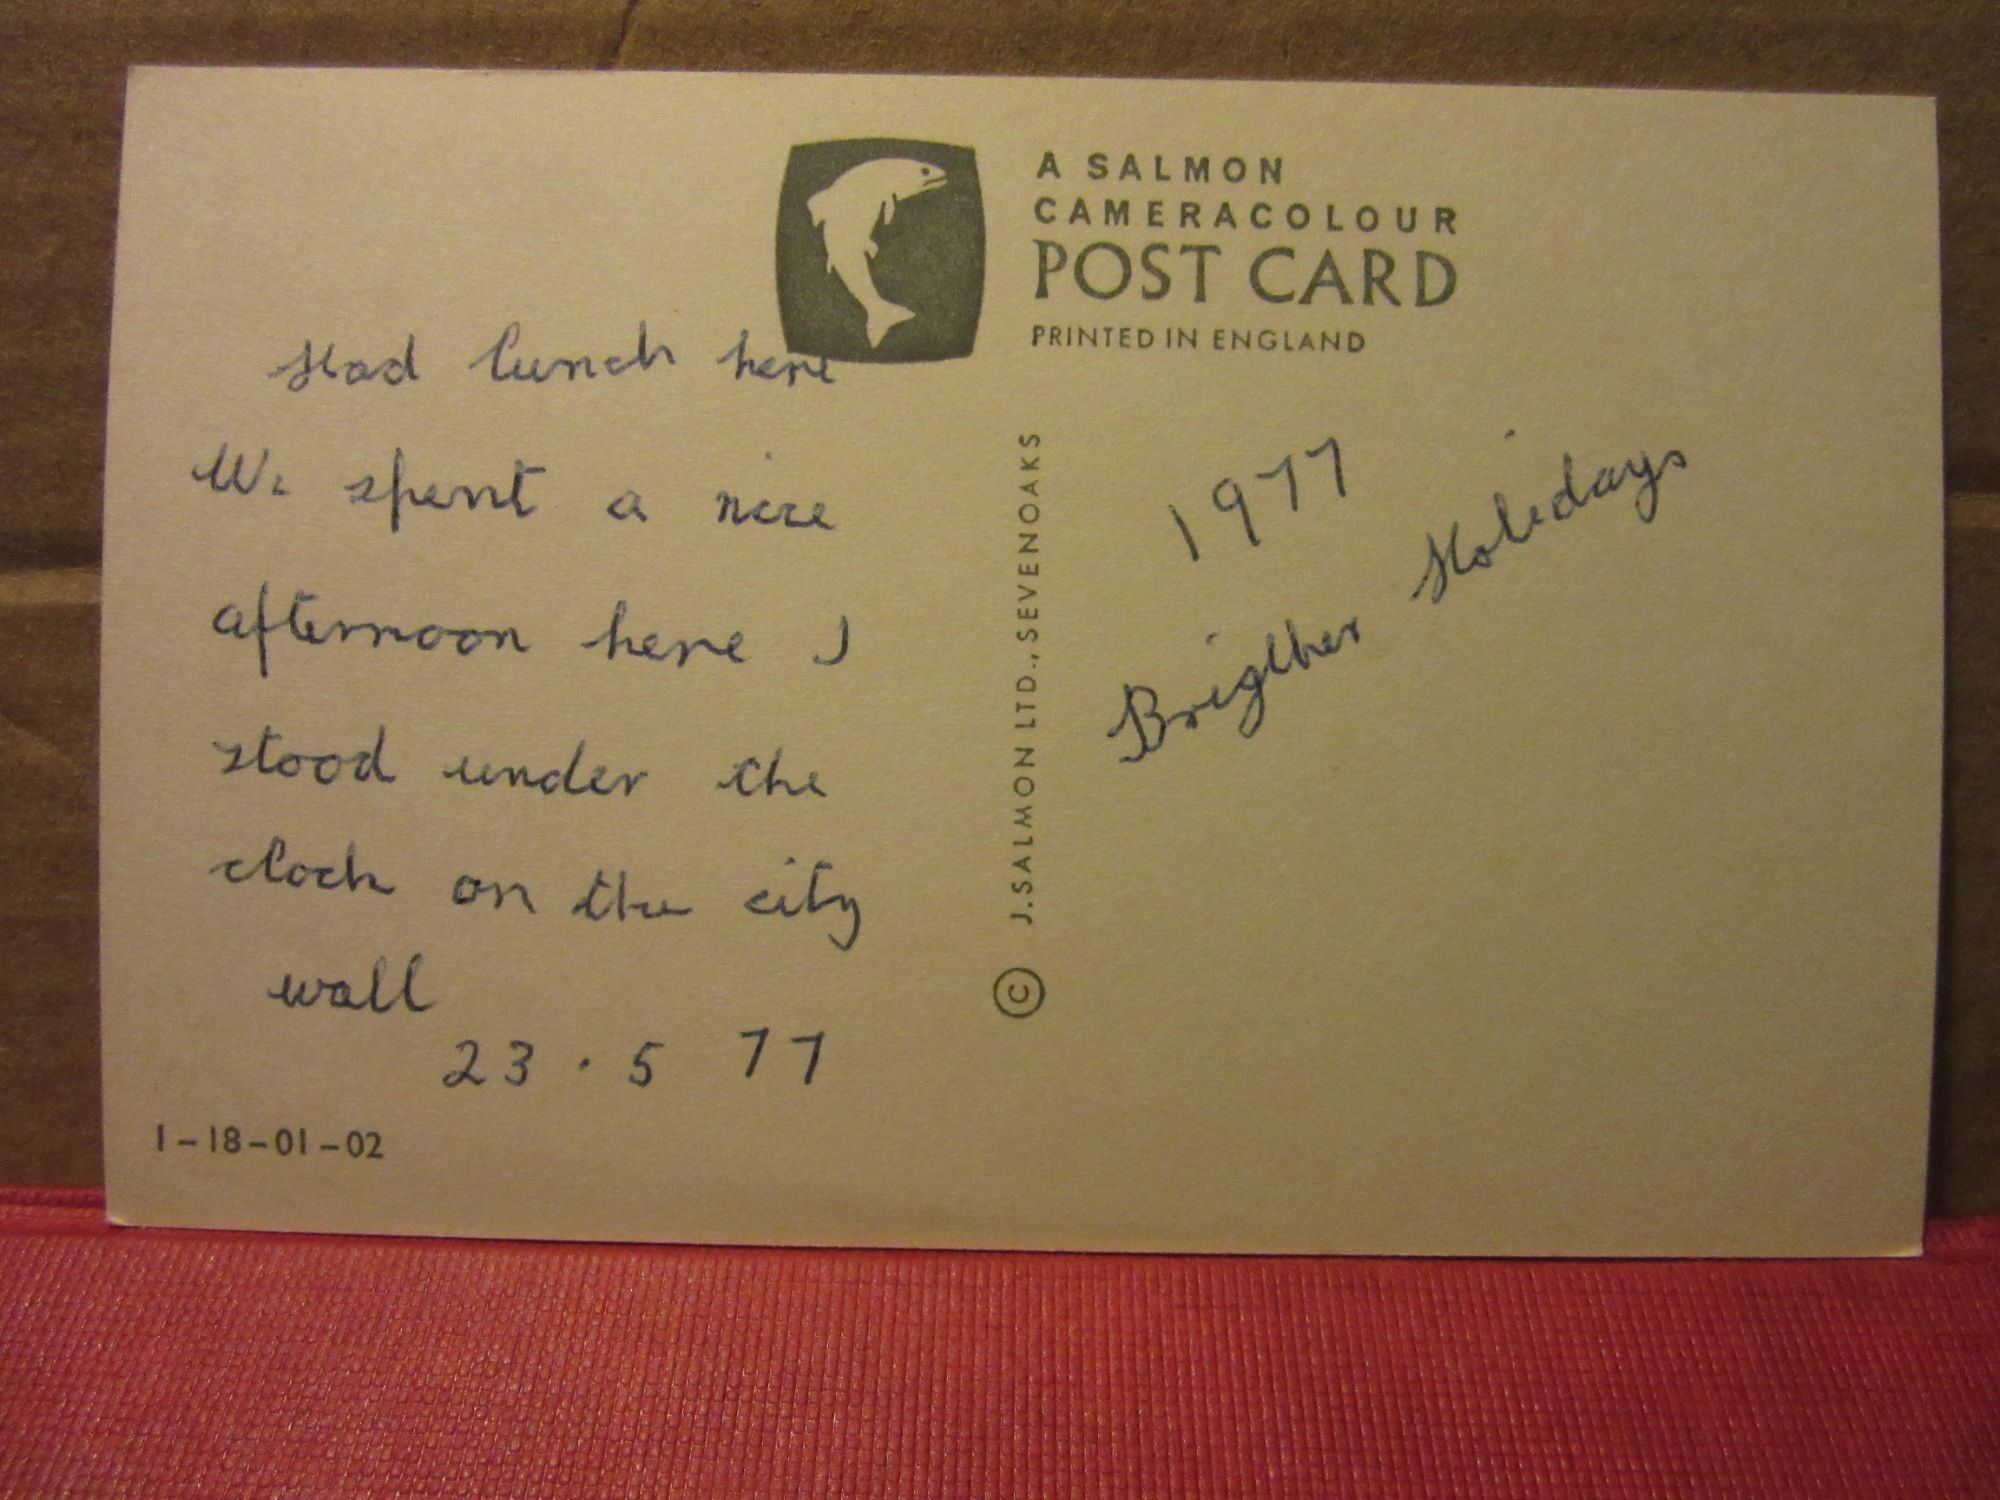 A SALMON
CAMERACOLOUR
POST CARD
PRINTED IN ENGLAND
Had lunch here
We spent a nice
afternoon here I
stood under the
clock on the city
wall
23 . 5 77
1-18-01-02
© J. SALMON LTD., SEVENOAKS
1977
Brigther Holidays